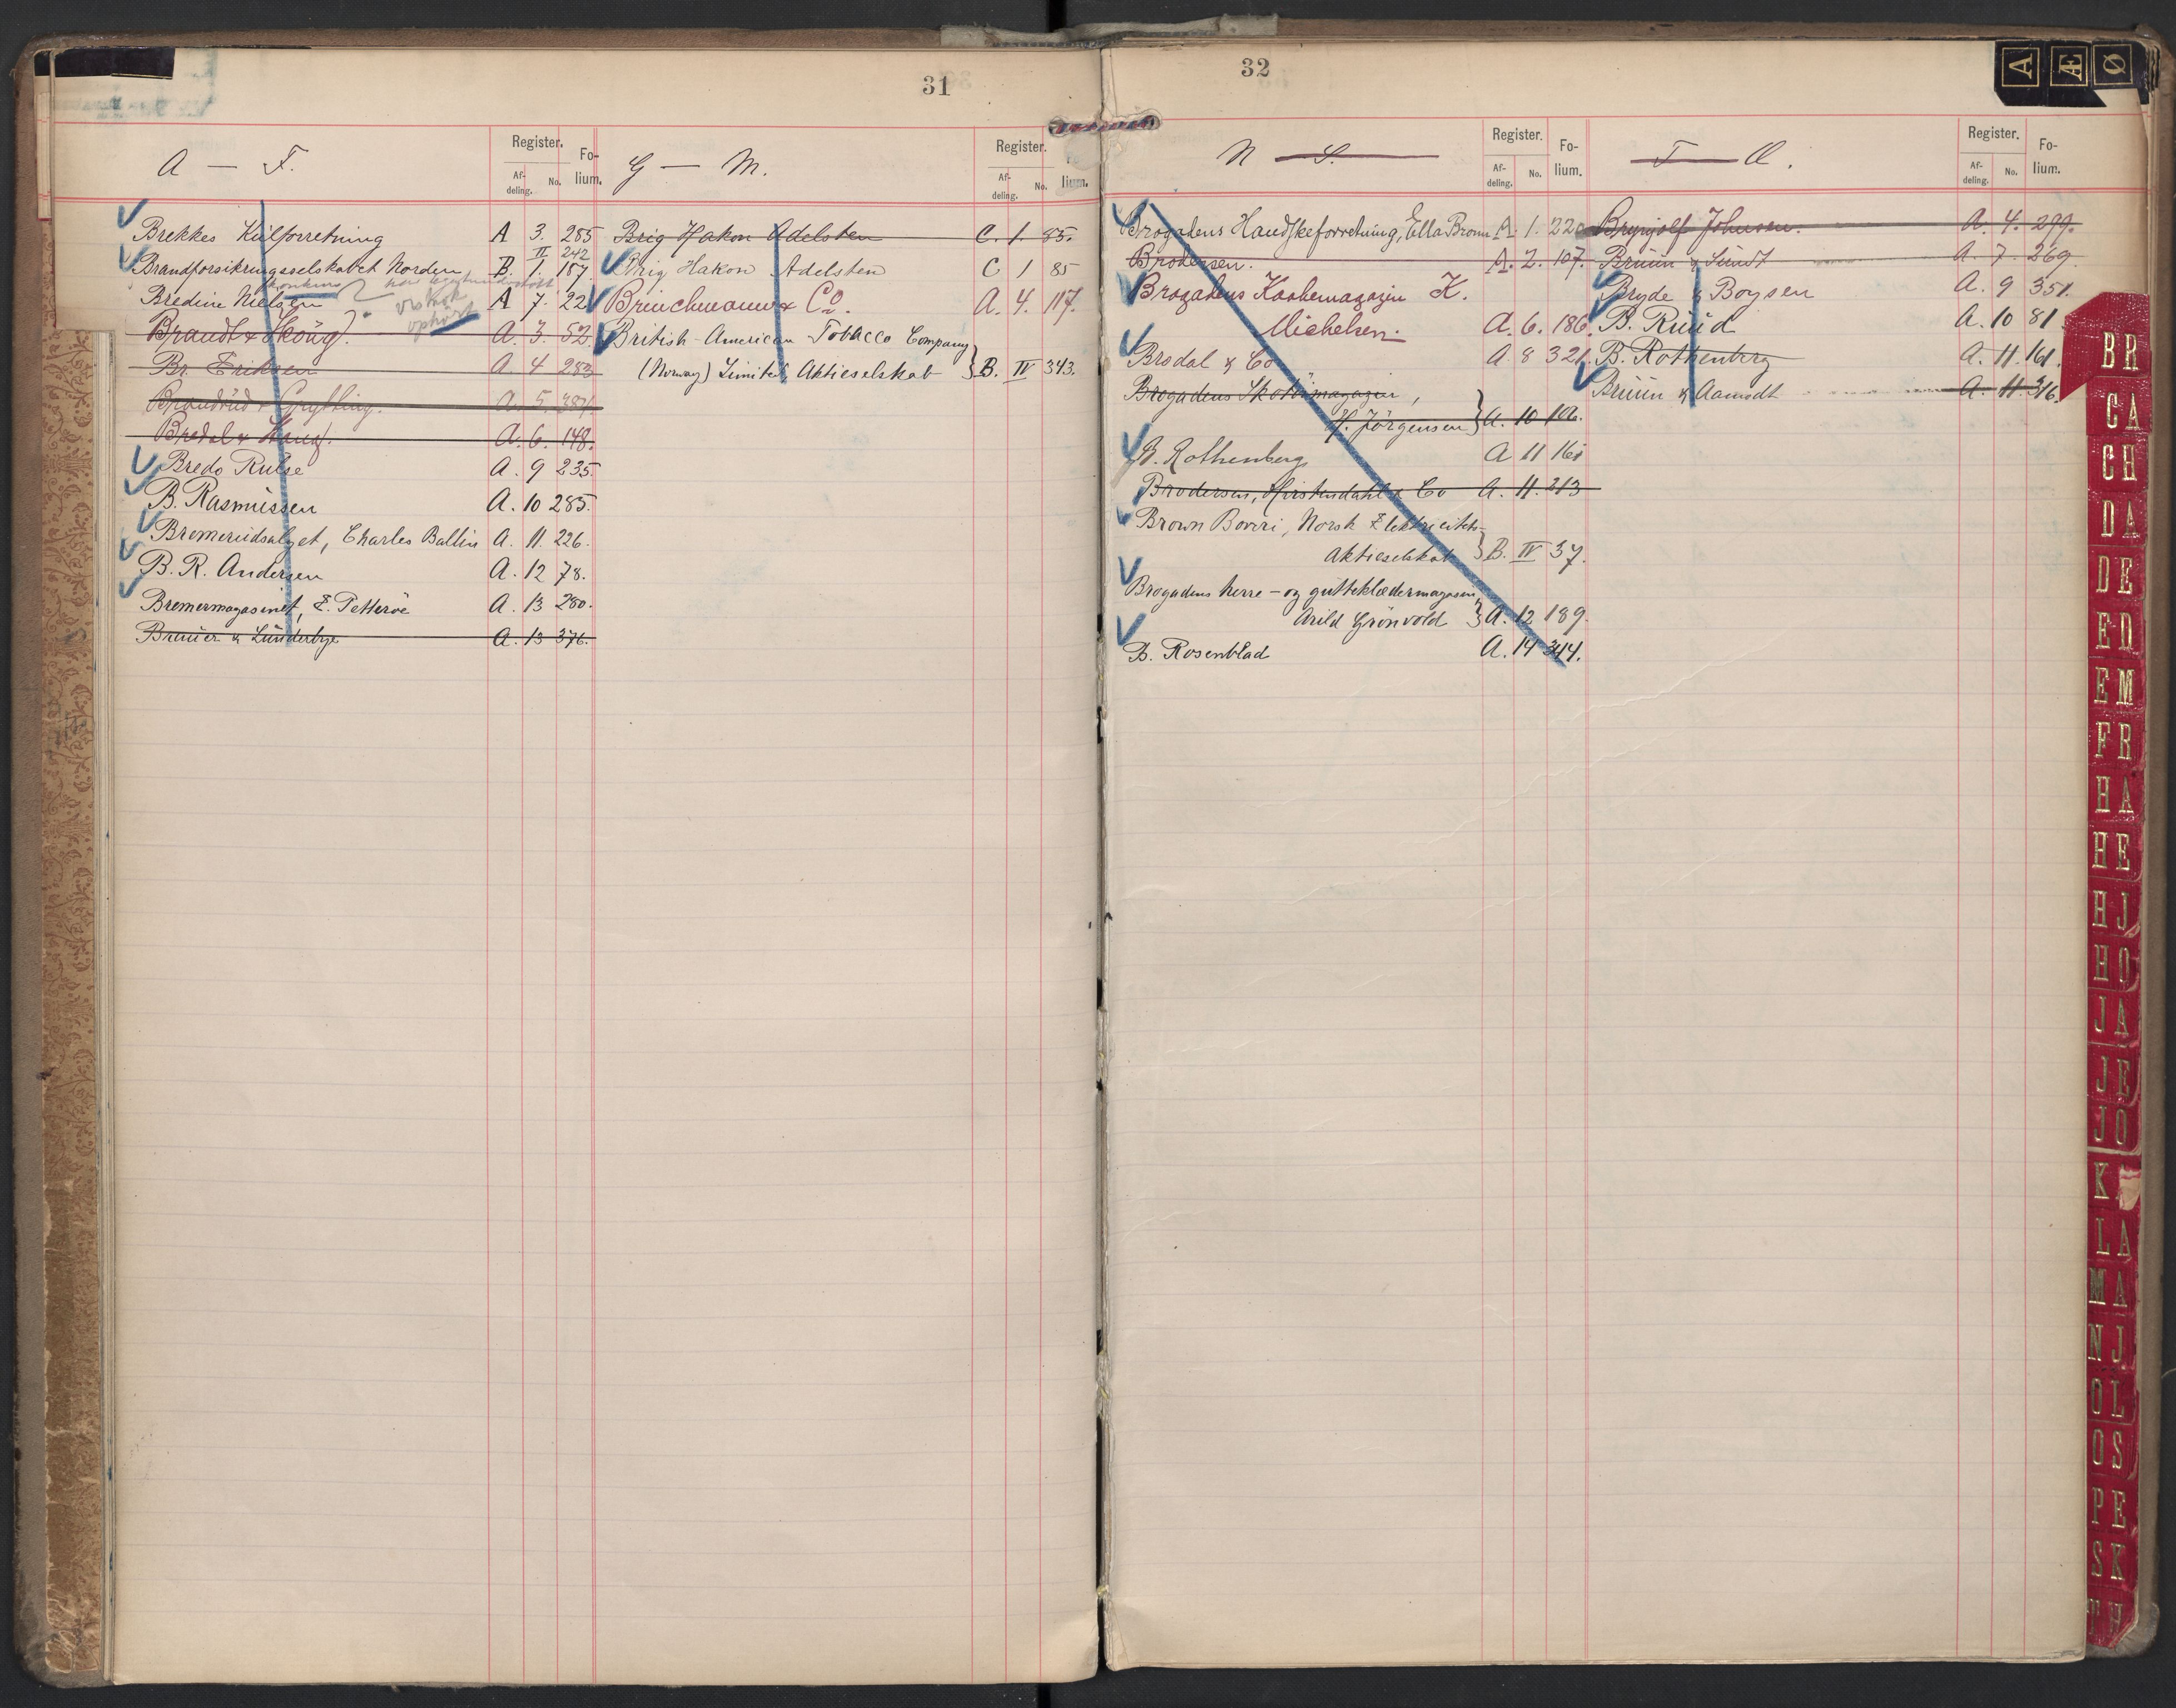 31
A — F.
Register.
Af-
deling.
No.
Fo-
lium.
Brekkes Külforretning A 3. 285
II 242
Brandforsikringsselskabet Norden B. 1. 157.
konkurs
Bredine Nielsen A 7. 22
ophørt
Brandt & Skoug. A. 3. 52.
Br. Eriksen A 4 283
A. 5. 387
Bredal & A. 6. 148.
Bredo Rulse A. 9 235.
B. Rasmüssen A. 10 285.
Bremerudsalget, Charles Ballin A. 11. 226.
B. R. Andersen A. 12 78.
Bremermagasinet, E. Petterøe A. 13 280.
Breuer & Lünderbye A. 13 376.
G — M.
Register.
Af-
deling.
No.
lium.
Brig Hakon Adelsten C. 1. 85.
Brig Hakon Adelsten C 1 85
Brinchmann & Co. A. 4. 117.
British-American Tobacco Company
(Norway) Limited, Aktieselskab } B. IV 343.
32
N — S.
Register.
Af-
deling.
No.
Fo-
lium.
Brogadens Handskeforretning, Ella Bronn A. 1. 220
Brodersen. A. 2. 107.
Brogadens Kaabemagazin K.
Michelsen. A. 6. 186.
Brodal & Co A 8 321.
Brogadens Skotöimagazin,
H. Jörgensen } A. 10 106.
B. Rothenberg A 11 161
Brodersen, Kirstendahl & Co A. 11. 213
Brown Boveri, Norsk Elektricitets-
Aktieselskab } B. IV 37.
Brogadens herre- og gutteklædermagasin,
Arild Grönvold } A. 12 189.
B. Rosenblad A. 14 344.
T — Ø.
Register.
Af-
deling.
No.
Fo-
lium.
Brynjolf Johnsen. A. 4. 299.
Brüün & Sündt A. 7. 269.
Bryde & Boysen A. 9 351.
B. Rüüd A. 10 81.
B. Rothenberg A. 11. 161.
Brüün & Aamodt A. 11. 316.
A
Æ
Ø
BR
CA
CH
DA
DE
ED
EM
FR
HA
HE
HJ
HO
JA
JE
JO
K
LA
MA
NJ
OL
OS
PE
SK
TH